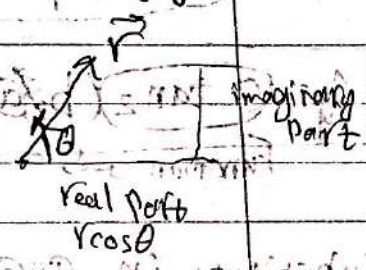 r
θ
imaginary
part
real part
rcosθ